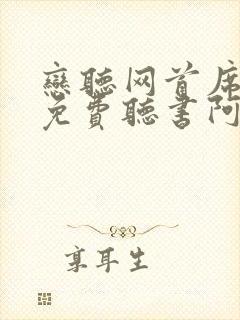 戀聽网首席
免費聽書阿
享耳生